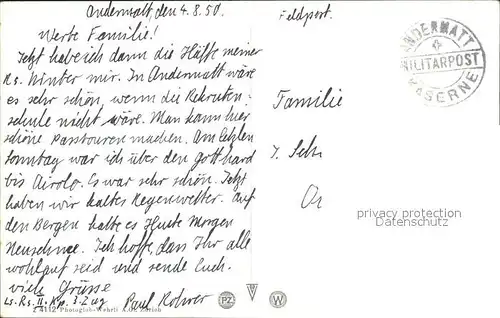 Andermatt, den 4.8.50.
Feldpost.
Werte Familie!
Jetzt habe ich dann die Hälfte meiner
Rs. hinter mir. In Andermatt wäre
es sehr schön, wenn die Rekruten-
schule nicht wäre. Man kann hier
schöne Radtouren machen. Am letzten
Sonntag war ich über den Gotthard
bis Airolo. Es war sehr schön. Jetzt
haben wir kaltes Regenwetter. Auf
den Bergen hatte es Heute Morgen
Neuschnee. Ich hoffe, dass Ihr alle
wohlauf seid und sende Euch
viele Grüsse
Ls. Rs. II. Kp. 3. Zug Paul Rohrer
Z 4112 Photoglob-Wehrli A.G. Zürich
ANDERMATT
MILITÄRPOST
KASERNE
Familie
J.
privacy protection
Datenschutz
PZ
W